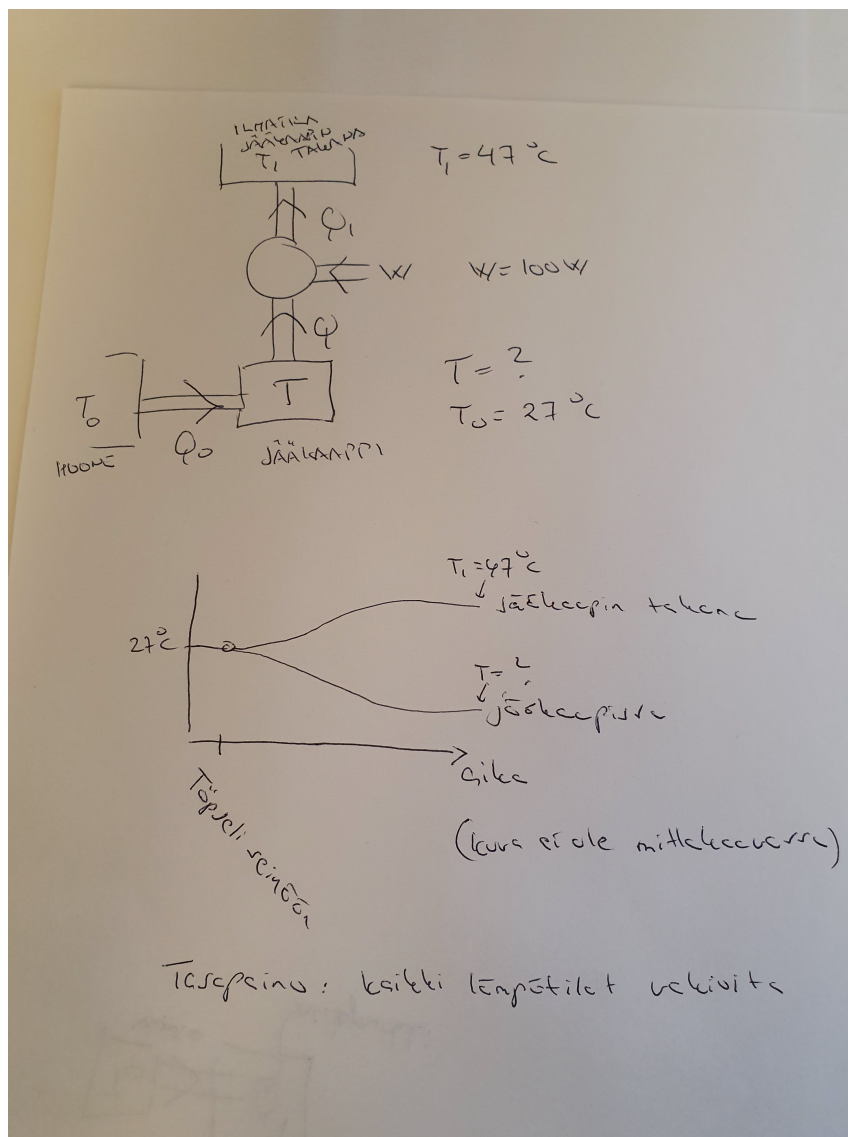 ILMATILA
JÄÄKAAPIN
T₁ TAKANA
T₁ = 47 °C
Q₁
W
W = 100W
Q
T
T = ?
T₀
T₀ = 27 °C
Q₀
HUONE
JÄÄKAAPPI
T₁ = 47 °C
jääkaapin takana
27 °C
T = ?
jääkaapissa
aika
Töpseli seinään
(kuva ei ole mittakaavassa)
Tasapaino: kaikki lämpötilat vakioita